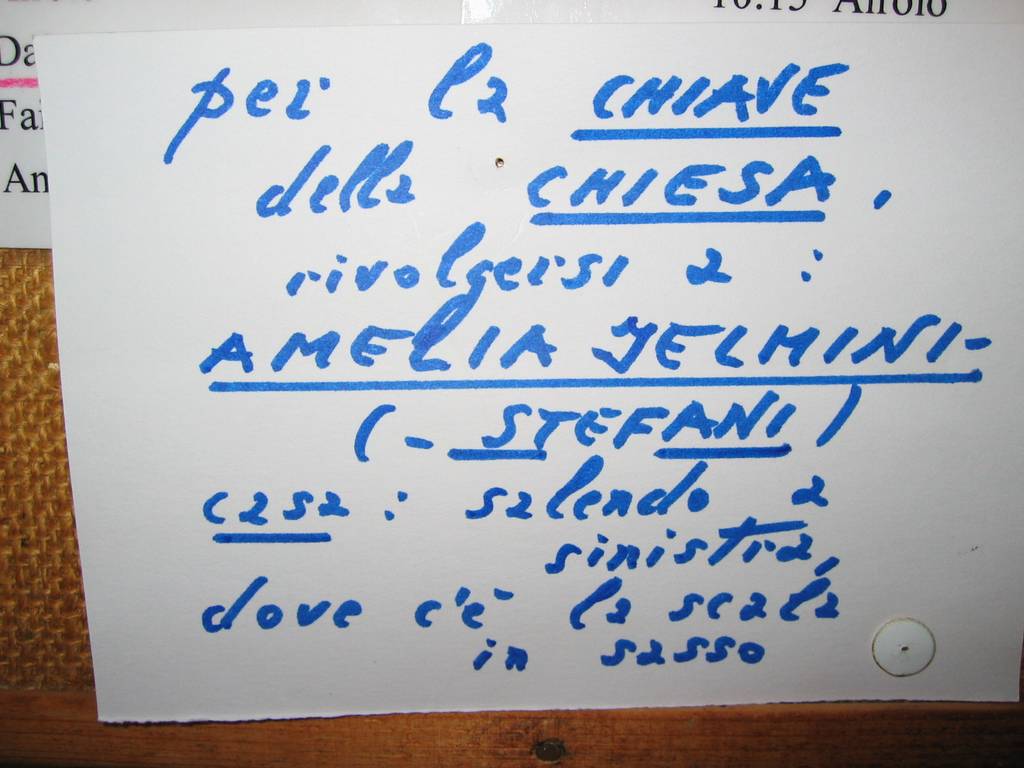 10:15 Airolo
Da
Fai
An
per la CHIAVE
della CHIESA,
rivolgersi a :
AMELIA JELMINI-
(- STEFANI)
casa : salendo a
sinistra,
dove c'è la scala
in sasso